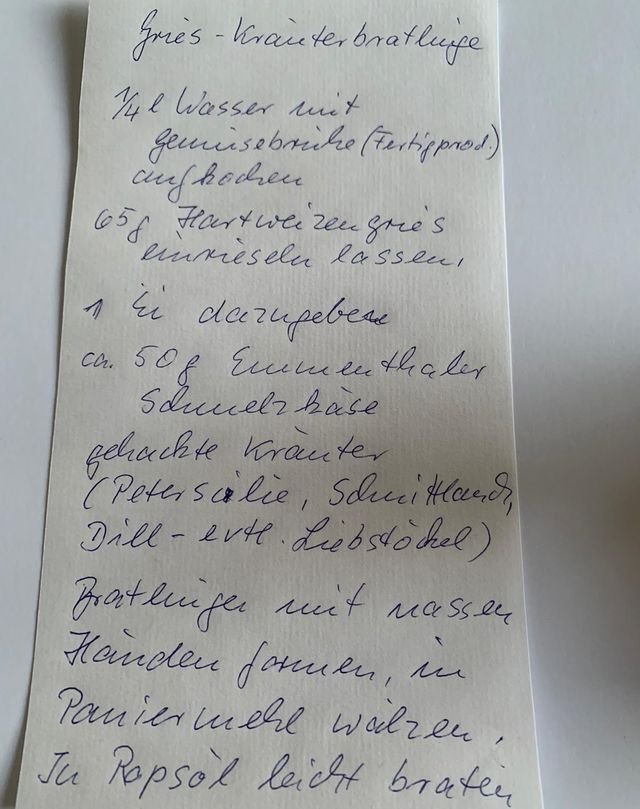 Gries-Kräuterbratlinge
1/4 l Wasser mit
gemüsebrühe (Fertigprod.)
aufkochen
65g Hartweizengries
einrieseln lassen,
1 Ei dazugeben
ca. 50g Emmenthaler
Schmelzkäse
gehackte Kräuter
(Petersilie, Schnittlauch,
Dill - evtl. Liebstöckel)
Bratlinge mit nassen
Händen formen, in
Paniermehl wälzen.
In Rapsöl leicht braten